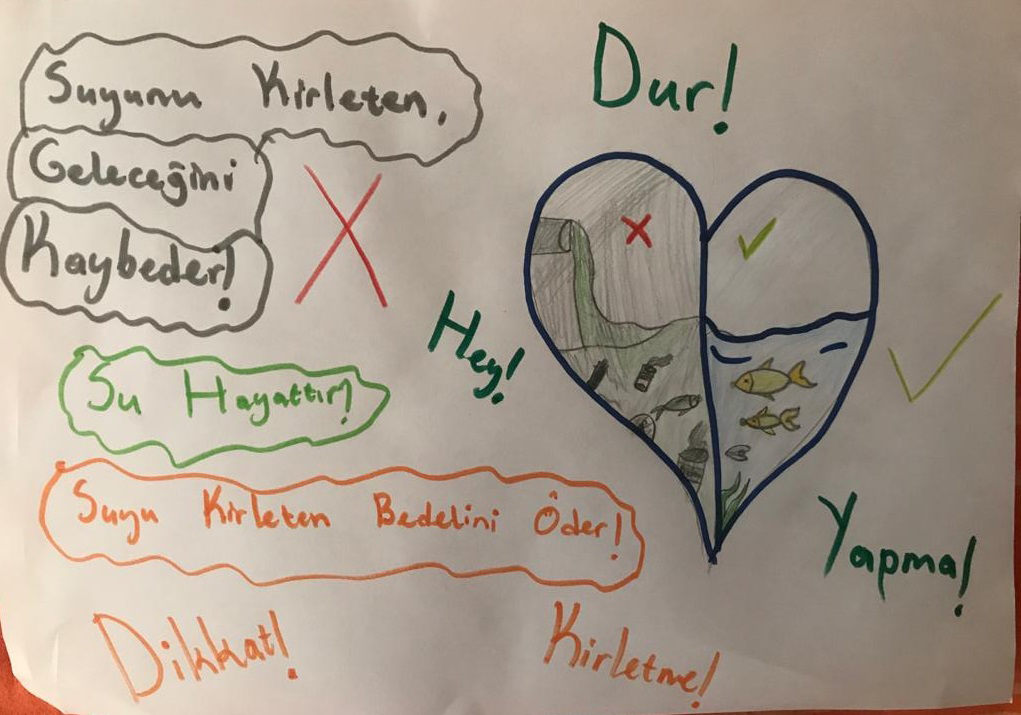 Suyunu Kirleten,
Geleceğini
Kaybeder!
Dur!
Hey!
Su Hayattır!
Suyu Kirleten Bedelini Öder!
Yapma!
Dikkat!
Kirletme!